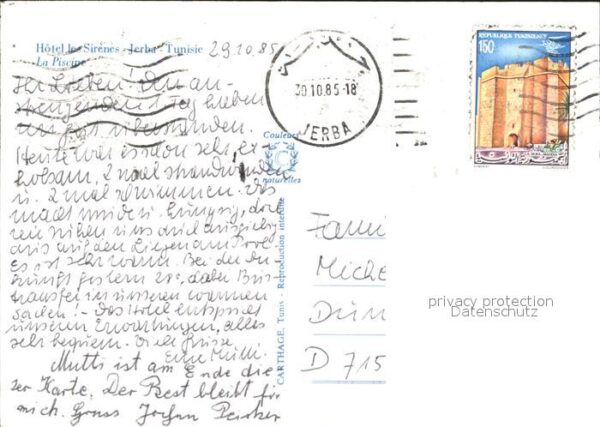 Hôtel les Sirènes - Jerba - Tunisie
La Piscine
29.10.85
Ihr Lieben! Den an-
strengenden 1. Tag haben
wir gut überstanden.
Heute war es schon sehr er-
holsam, 2 mal strandwandern
u. 2 mal schwimmen. Das
macht müde u. hungrig, doch
ruhen wir uns auch ausgiebig
aus auf den Liegen am Pool.
Es ist sehr warm. Bei der An-
kunft gestern 28°, dabei Bus-
transfer in unseren warmen
Sachen! - Das Hotel entspricht
unseren Erwartungen, alles
sehr bequem. Viele Grüsse
Eure Mutti.
Mutti ist am Ende die-
ser Karte. Der Rest bleibt für
mich. Gruss Jochen
Couleurs
naturelles
CARTHAGE, Tunis - Reproduction interdite
30.10.85-18
JERBA
REPUBLIQUE TUNISIENNE
150
Fami
Miche
Dün
D 715
privacy protection
Datenschutz